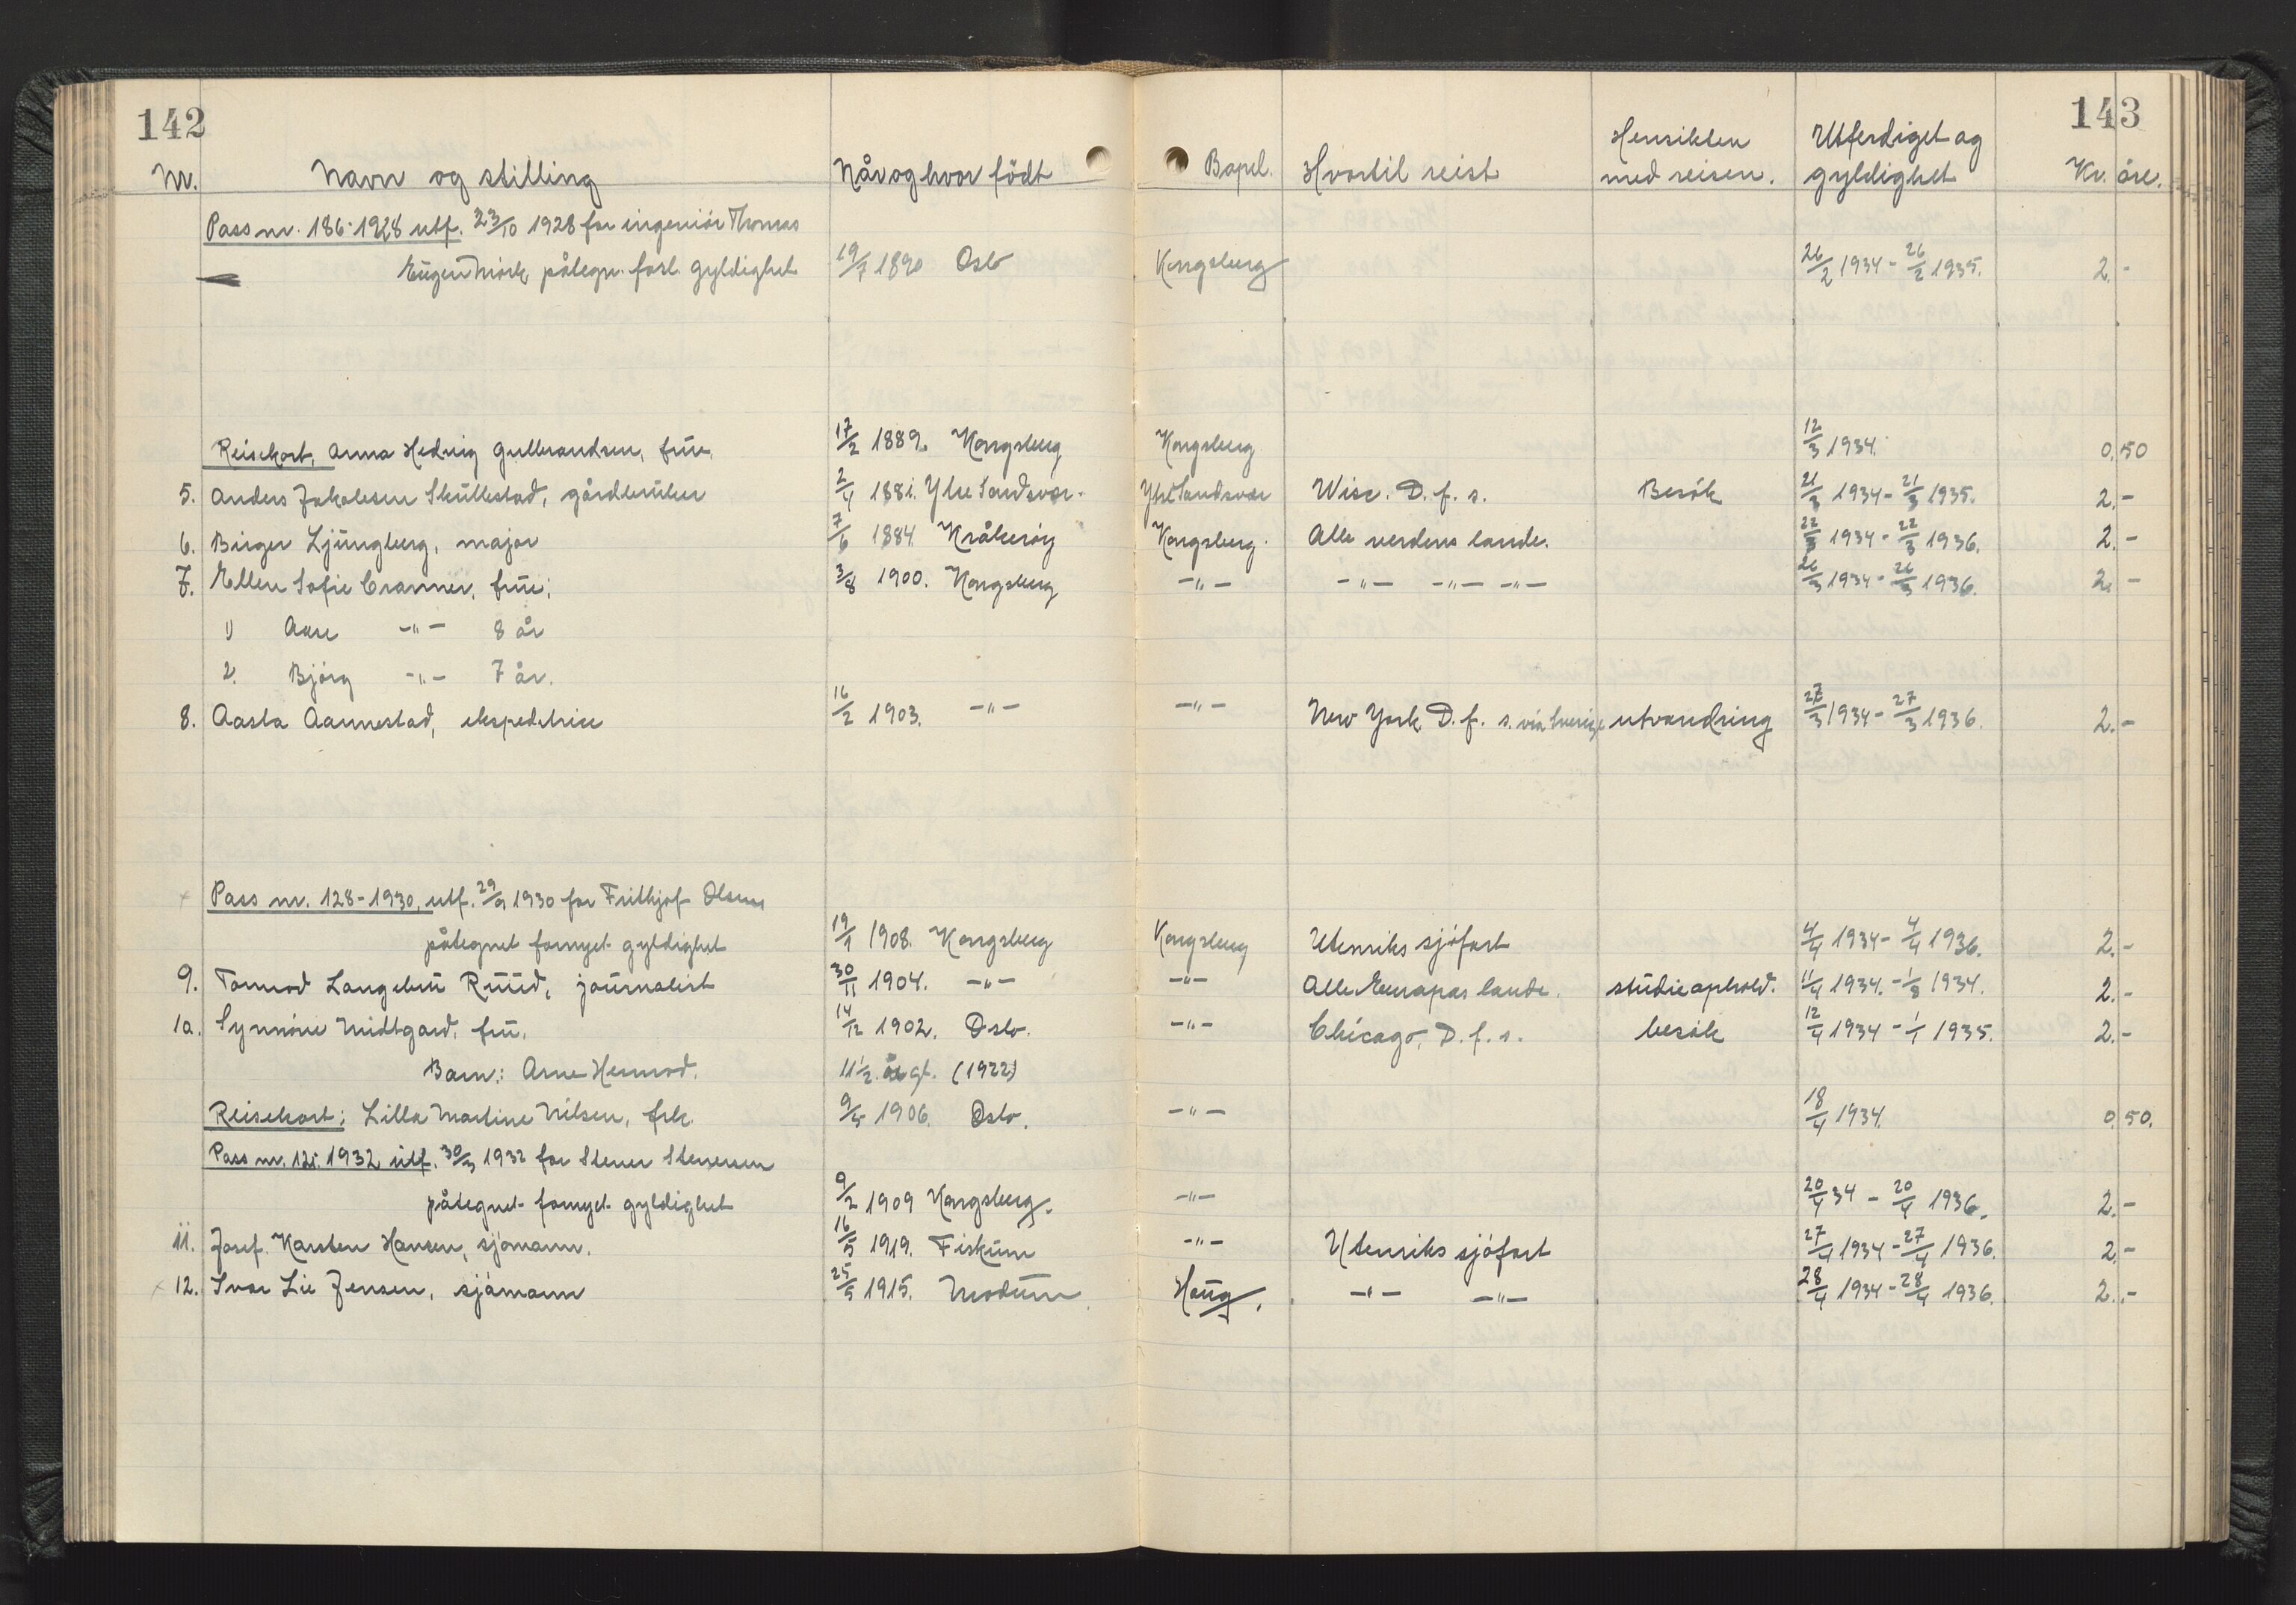 142
143
Nr. Navn og stilling Når og hvor födt Bopel. Hvortil reist Hensikten med reisen. Utferdiget og gyldighet Kr. öre.
Pass nr. 186-1928 utf. 23/10 1928 for ingeniör Thomas
Eugen Mörk, påtegn. forl. gyldighet 19/7 1890 Oslo Kongsberg 26/2 1934 - 26/2 1935. 2.-
Reisekort, Anna Hedvig Gulbrandsen, frue. 17/2 1889. Kongsberg Kongsberg 12/3 1934. 0,50
5. Anders Jakobsen Skullestad, gårdbruker 2/4 1881. Ytre Sandsvær. Ytre Sandsvær Wisc. D.f.s. Besök 21/3 1934 - 21/3 1935. 2.-
6. Birger Ljungberg, major 7/6 1884 Kråkeröy Kongsberg. Alle verdens lande. 22/3 1934 - 22/3 1936. 2.-
7. Ellen Sofie Cranner, frue: 3/8 1900. Kongsberg -"- -"- -"- -"- 26/3 1934 - 26/3 1936. 2.-
1) Aase -"- 8 år
2. Björg -"- 7 år.
8. Aasta Aannestad, ekspeditrise 16/2 1903. -"- -"- New York D.f.s. via Sverige utvandring 27/3 1934 - 27/3 1936. 2.-
Pass nr. 128-1930, utf. 29/9 1930 for Frithjof Olsen
påtegnet fornyet gyldighet 19/1 1908. Kongsberg Kongsberg Utenriks sjöfart 4/4 1934 - 4/4 1936. 2.-
9. Tormod Langebu Ruud, journalist 30/11 1904. -"- -"- Alle Europas lande. studieophold. 11/4 1934. - 1/8 1934. 2.-
10. Synnöve Midtgard, fru. 14/12 1902. Oslo. -"- Chicago, D.f.s. besök 12/4 1934 - 1/1 1935. 2.-
Barn: Arne Hermod. 11 1/2 år gl. (1922)
Reisekort: Lilla Martine Nilsen, frk. 9/5 1906. Oslo. -"- 18/4 1934. 0,50.
Pass nr. 12: 1932 utf. 30/3 1932 for Stener Stenersen
påtegnet fornyet gyldighet 9/2 1909 Kongsberg. -"- 20/4 34 - 20/4 1936. 2.-
11. Josef Karsten Hansen, sjömann. 16/5 1919. Fiskum -"- Utenriks sjöfart 27/4 1934 - 27/4 1936. 2.-
x 12. Ivar Lie Jensen, sjömann 25/5 1915. Modum Haug. -"- -"- 28/4 1934 - 28/4 1936. 2.-